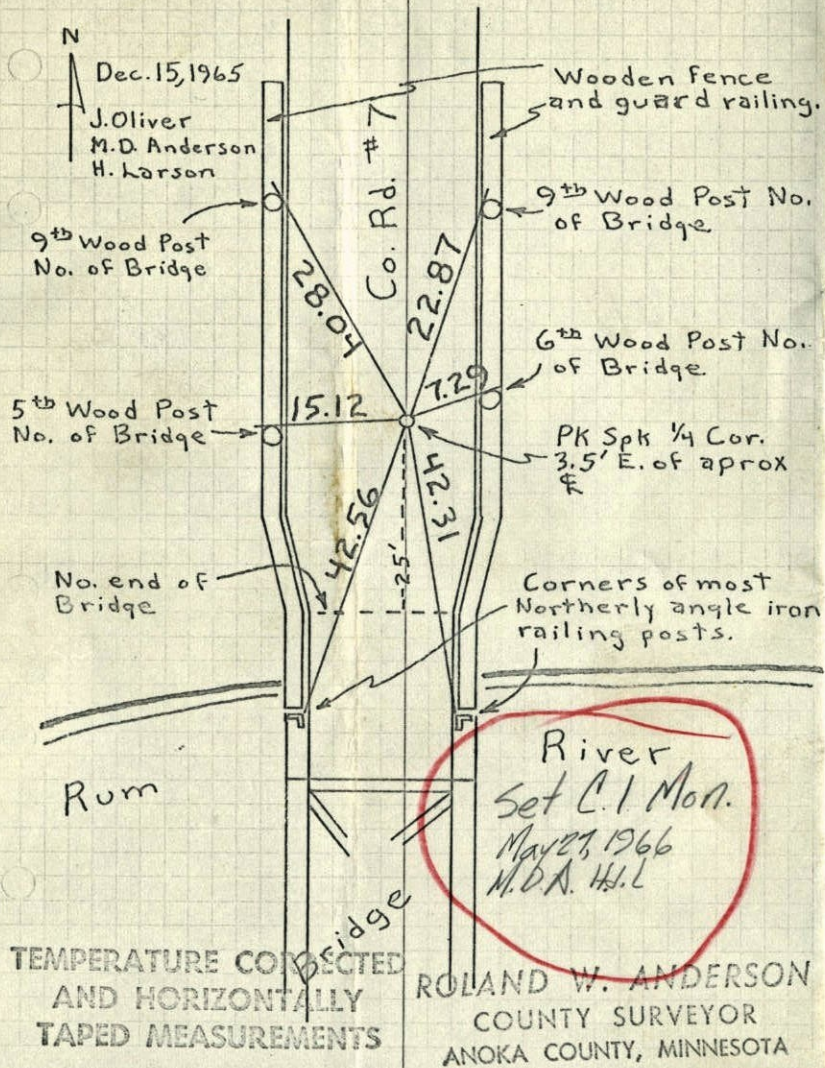 N
Dec. 15, 1965
J. Oliver
M.D. Anderson
H. Larson
Wooden fence
and guard railing.
Co. Rd. #7
9th Wood Post
No. of Bridge
9th Wood Post No.
of Bridge
28.04
22.87
6th Wood Post No.
of Bridge
7.29
5th Wood Post
No. of Bridge
15.12
PK Spk 1/4 Cor.
3.5' E. of aprox
℄
42.56
42.31
25'
No. end of
Bridge
Corners of most
Northerly angle iron
railing posts.
Rum
River
Set C.I. Mon.
May 27, 1966
M.D.A. H.J.L
Bridge
TEMPERATURE CORRECTED
AND HORIZONTALLY
TAPED MEASUREMENTS
ROLAND W. ANDERSON
COUNTY SURVEYOR
ANOKA COUNTY, MINNESOTA